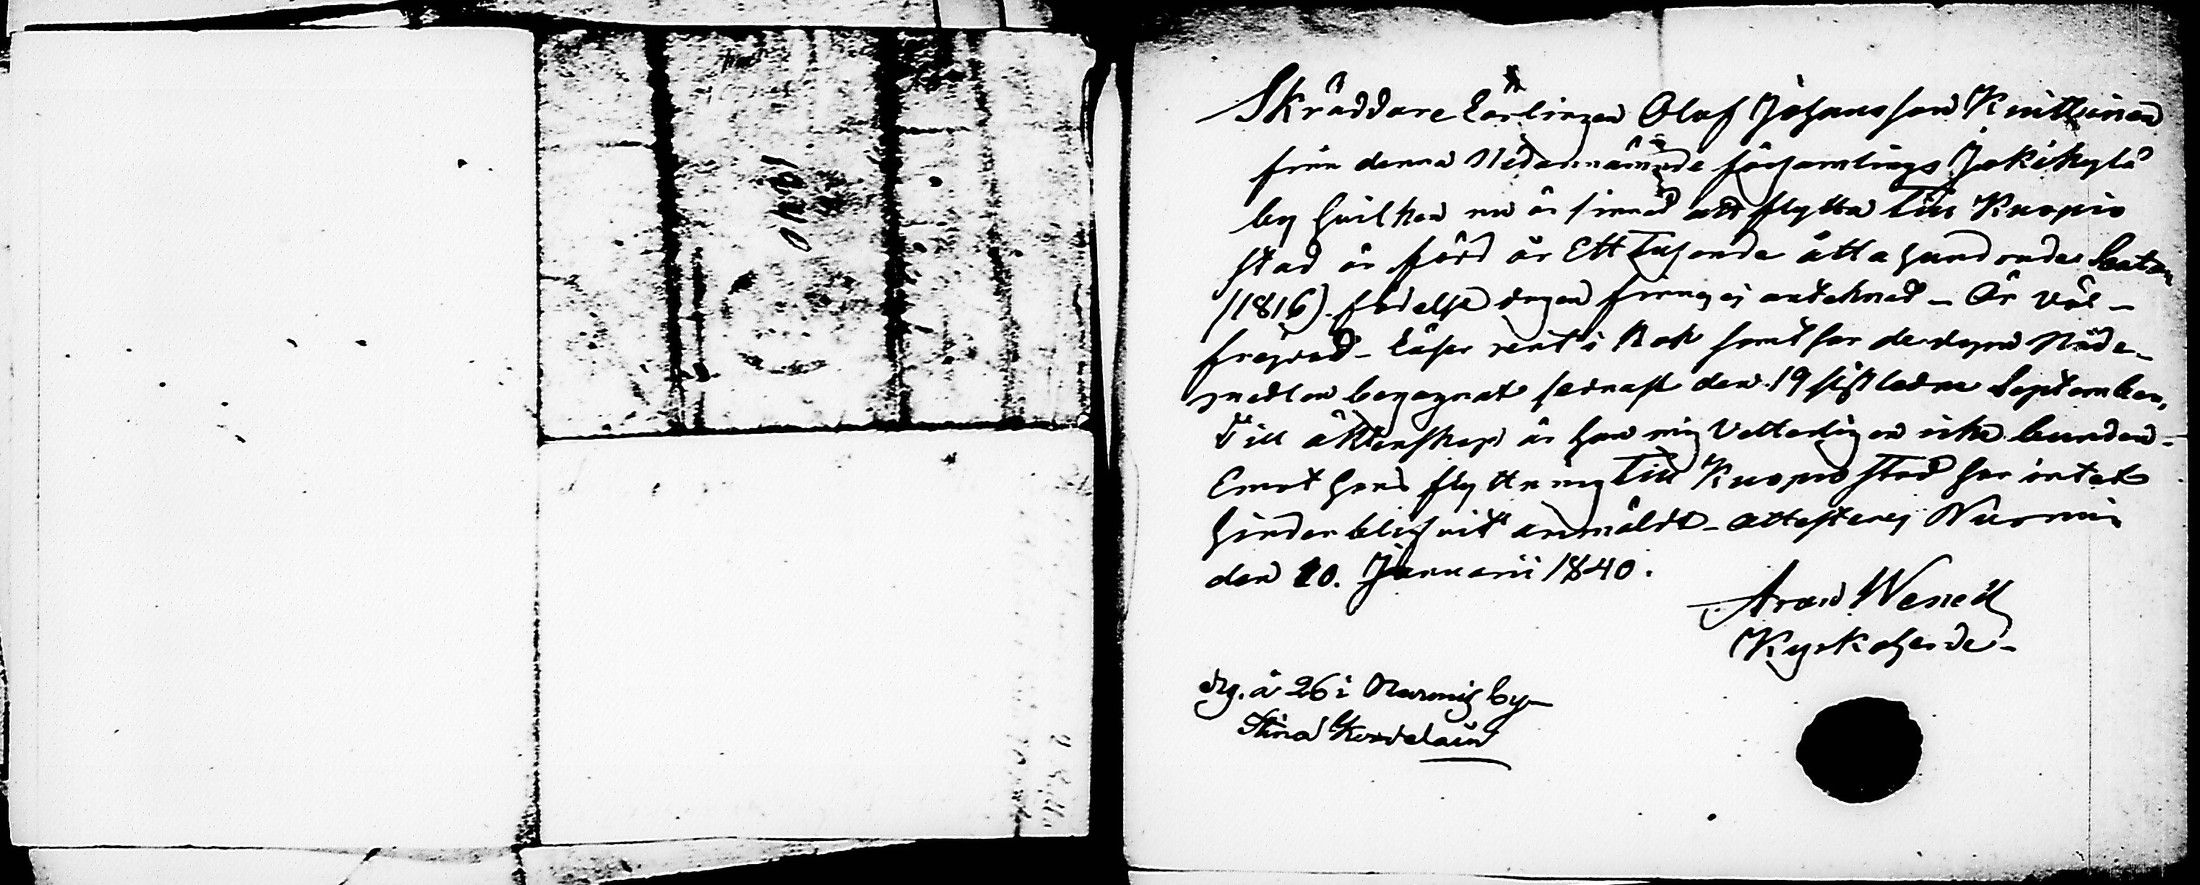 1840
Skräddare Lärlingen Olof Johansson Knuttinen
från denna Nedannämnde församlings Jokikylä
by hvilken nu är sinnad att flytta till Kuopio
stad är född år Ett Tusende åtta hundrade Sexton
(1816). födelse dagen finnes ej antecknad – Är väl –
frägdad – Läser rent i Bok samt har derdopå Nåde-
medlen begagnat sednast den 19 sistledne September,
Till äktenskap är han mig Vetterligen icke bunden –
Emot hans flyttning till Kuopio stad har intet
hinder blifvit anmäldt – attesterer Nurmis
den 20. Januarii 1840.
Aron Wenell
Kyrkoherde –
å 26 i Nurmis by –
Stina